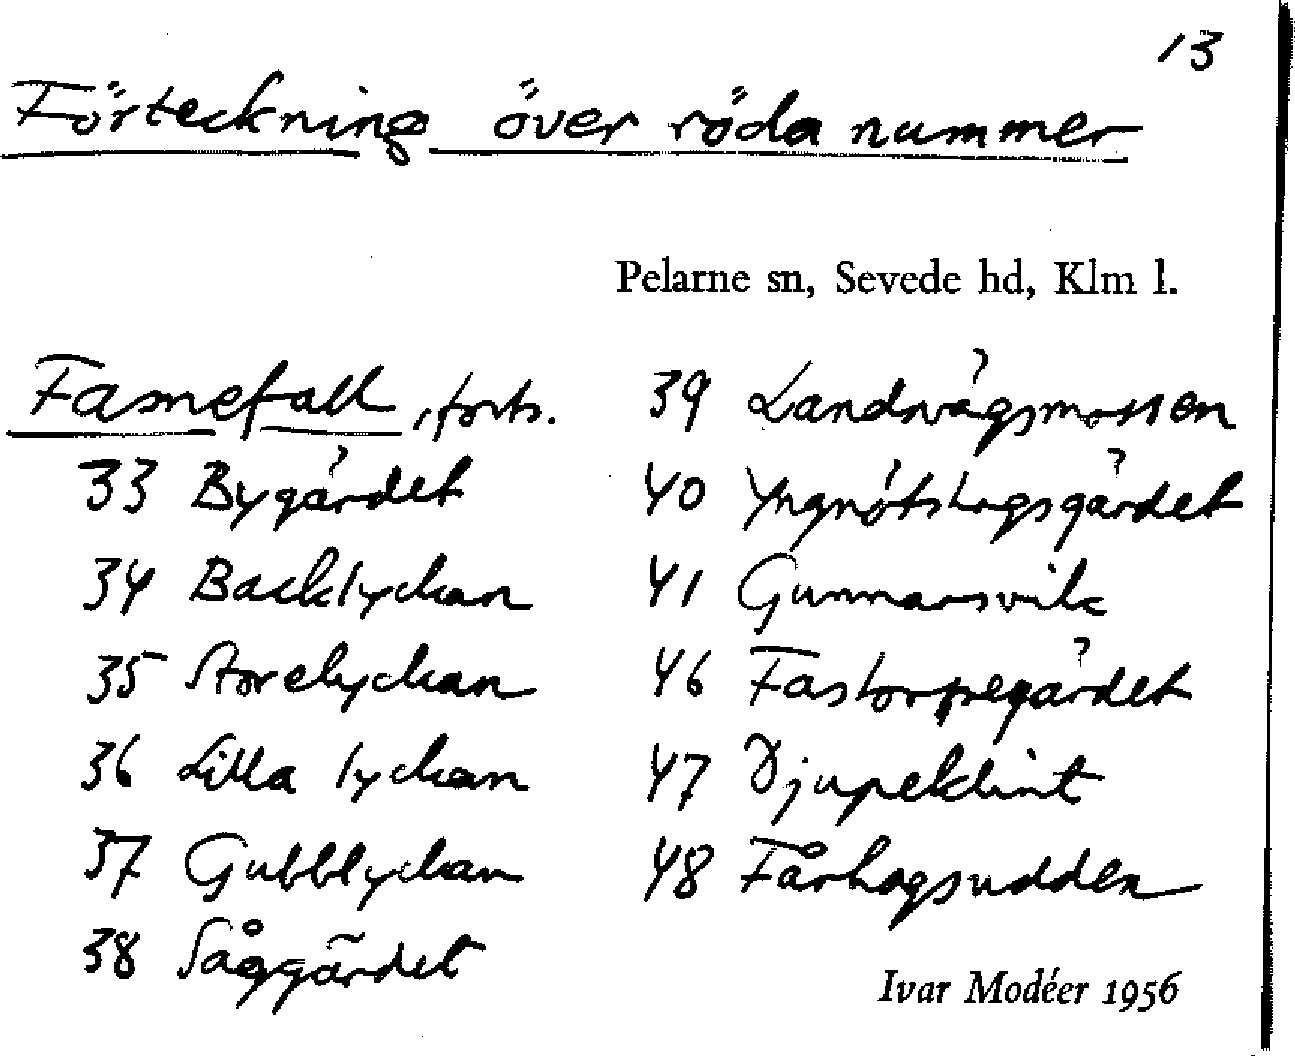 13
Förteckning över röda nummer
Pelarne sn, Sevede hd, Klm l.
Fasnefall, forts.
33 Bygärdet
34 Backlyckan
35 Storelyckan
36 Lilla lyckan
37 Gubblyckan
38 Såggärdet
39 Landvägsmossen
40 Yngnötshagsgärdet
41 Gunnarsvik
46 Fastorpegärdet
47 Djupeklint
48 Fårhagsudden
Ivar Modéer 1956